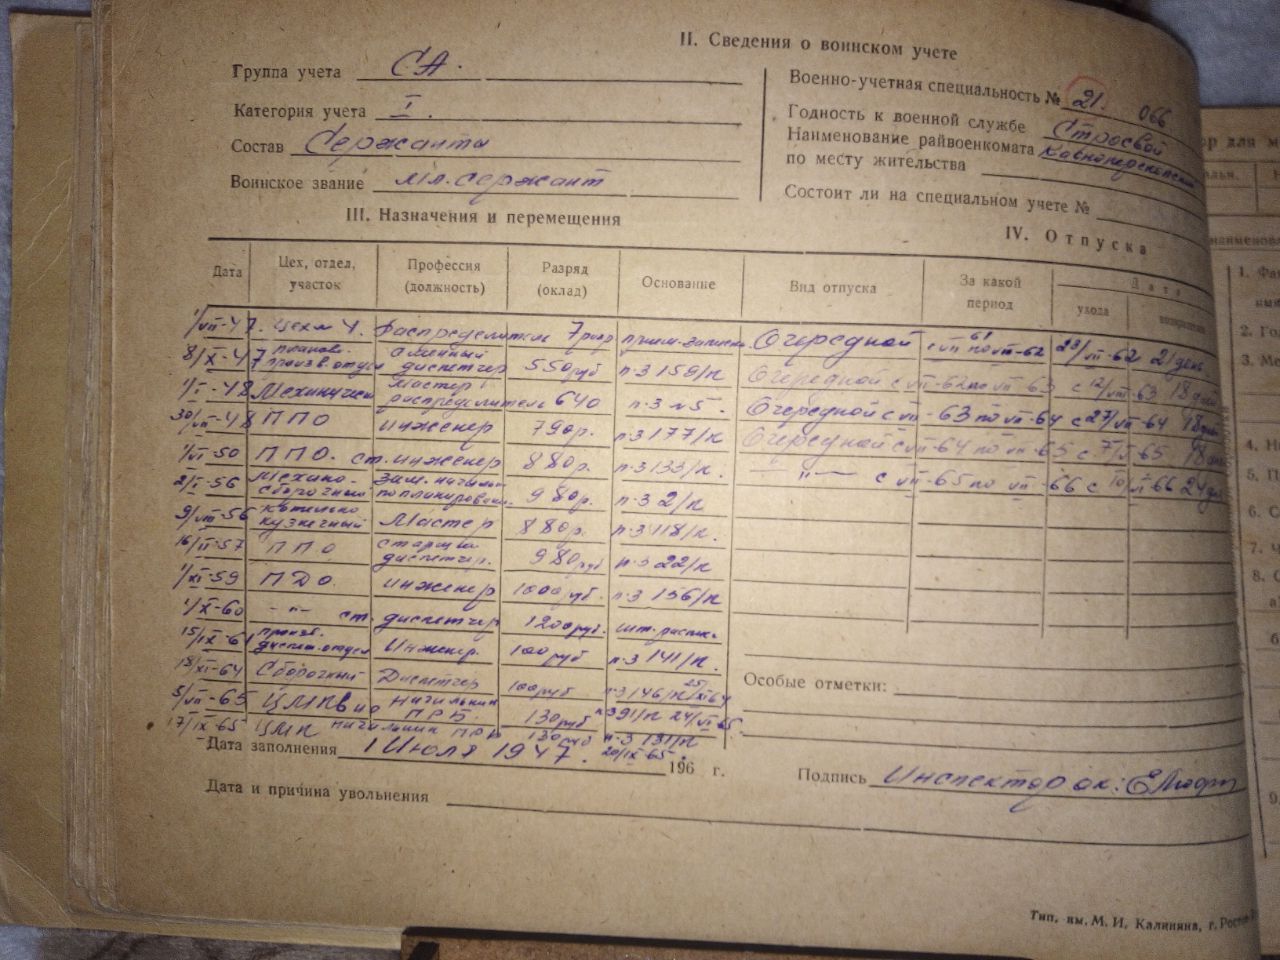 II. Сведения о воинском учете
Группа учета С.А.
Категория учета I.
Состав Сержанты
Воинское звание мл. сержант
Военно-учетная специальность № 21. 066
Годность к военной службе Строевой
Наименование райвоенкомата
по месту жительства
Состоит ли на специальном учете №
III. Назначения и перемещения
Дата Цех, отдел, участок Профессия (должность) Разряд (оклад) Основание
1/VII-47. Цех № 4. распределитель 7 разр.
8/IX-47 планово- произв. отдел сменный диспетчер 550 руб п-з 159/к
1/I-48 Механический мастер распределитель 640 п-з №5.
30/VII-48 ППО инженер 790р. п-з 177/к
1/VII-50 ППО. ст. инженер 880р. п-з 133/к.
2/I-56 Механо- сборочный зам. начальн. по планирован. 980р. п-з 2/к
9/VIII-56 котельно кузнечный мастер 880р. п-з 118/к.
16/II-57 ППО старший диспетчер. 980 руб п-з 22/к
1/XI-59 ПДО. инженер 1000 руб. п-з 136/к
1/X-60 -"- ст. диспетчер 1200 руб. шт. распис.
15/IX-61 произв. диспет. отдел Инженер. 100 руб п-з 141/к.
18/XI-64 Сборочный Диспетчер 100 руб п-з 146/к 25/XI 64
5/VII-65 ЦМК начальник ПРБ. 130 руб п-з 91/к 24/VII-65.
17/IX-65 ЦМК начальник 130 руб п-з 131/к
20/IX-65.
IV. Отпуска
Вид отпуска За какой период Дата ухода
Очередной с VII 61 по VII-62 23/VII-62 21 день
Очередной с VII-62 по VII-63 с 12/VII-63 18 дней
Очередной с VII-63 по VII-64 с 27/VII-64 18 дней
Очередной с VII-64 по VII-65 с 18 дней
-"- с VII-65 по VII-66 с 24 дня
Особые отметки:
Дата заполнения 1 Июля 1947. 196 г.
Подпись Инспектор ок:
Дата и причина увольнения
Тип. им. М. И. Калинина, г.
1.
2.
3.
4. Н
5. П
6. С
7. Ч
8.
9.